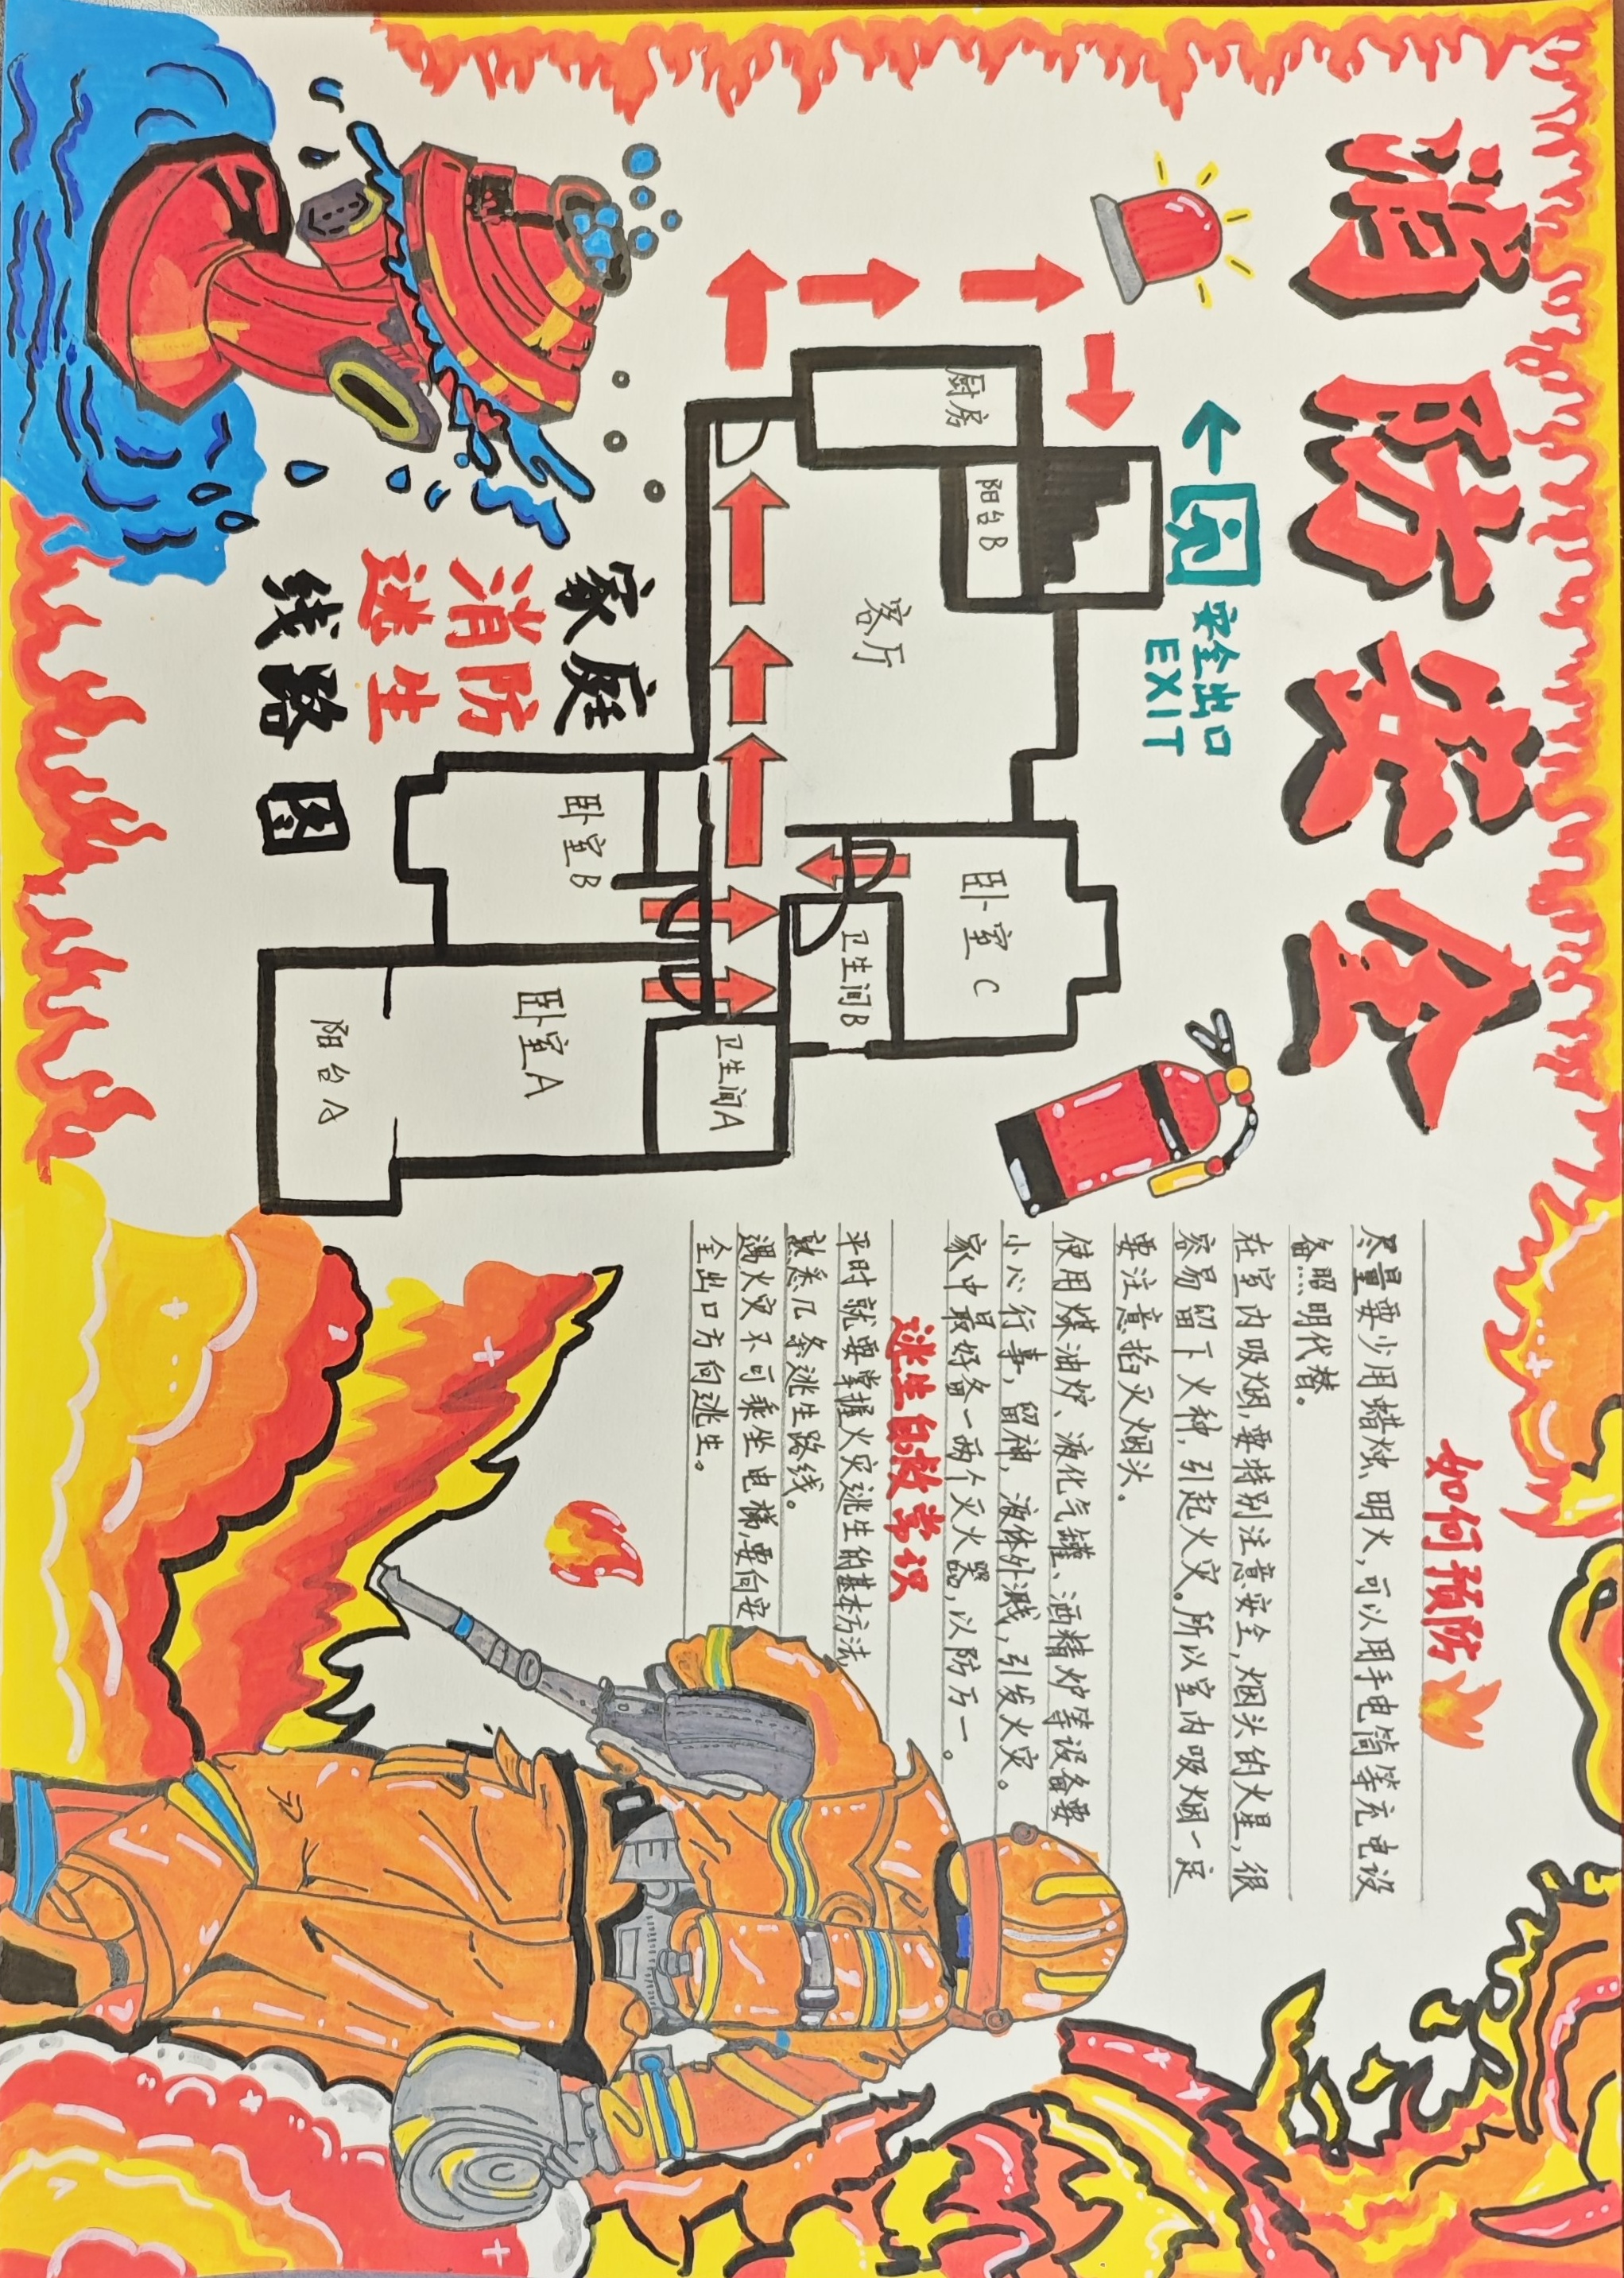 消防安全
安全出口
EXIT
厨房
阳台B
客厅
卧室C
卫生间B
卧室B
卫生间A
卧室A
阳台A
家庭
消防
逃生
线路图
如何预防
尽量要少用蜡烛、明火，可以用手电筒等充电设
备照明代替。
在室内吸烟，要特别注意安全，烟头的火星，很
容易留下火种，引起火灾。所以室内吸烟一定
要注意掐灭烟头。
使用煤油炉、液化气罐、酒精炉等设备要
小心行事，留神，液体外溅，引发火灾。
家中最好备一两个灭火器，以防万一。
逃生自救常识
平时就要掌握火灾逃生的基本方法
熟悉几条逃生路线。
遇火灾不可乘坐电梯，要向安
全出口方向逃生。